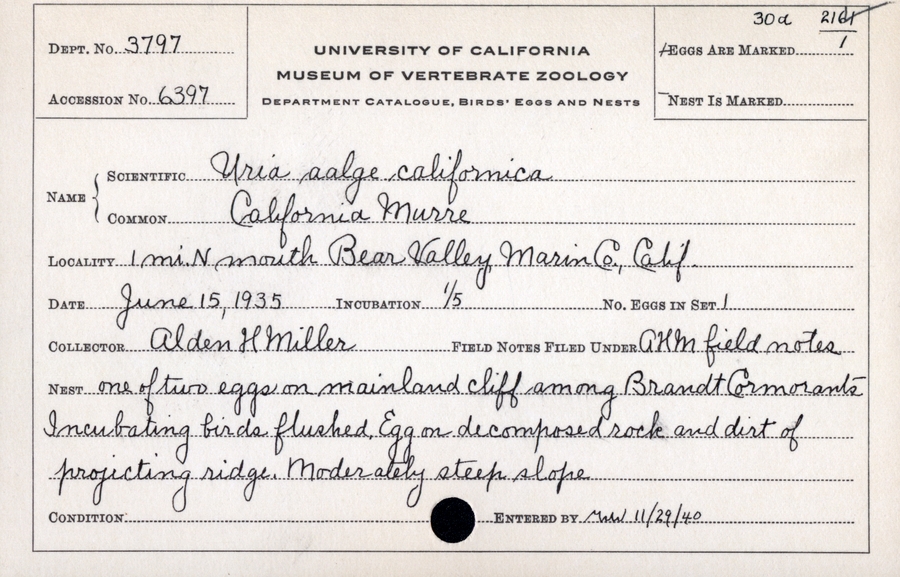 30a 2161/1
DEPT. NO. 3797
UNIVERSITY OF CALIFORNIA
MUSEUM OF VERTEBRATE ZOOLOGY
DEPARTMENT CATALOGUE, BIRDS' EGGS AND NESTS
EGGS ARE MARKED
ACCESSION NO. 6397
NEST IS MARKED
NAME
SCIENTIFIC Uria aalge californica
COMMON California Murre
LOCALITY 1 mi N mouth Bear Valley, Marin Co., Calif.
DATE June 15, 1935 INCUBATION 1/5 NO. EGGS IN SET 1
COLLECTOR Alden H Miller FIELD NOTES FILED UNDER AHM field notes
NEST one of two eggs on mainland cliff among Brandt Cormorants
Incubating birds flushed. Egg on decomposed rock and dirt of
projecting ridge. Moderately steep slope
CONDITION ENTERED BY 11/29/40